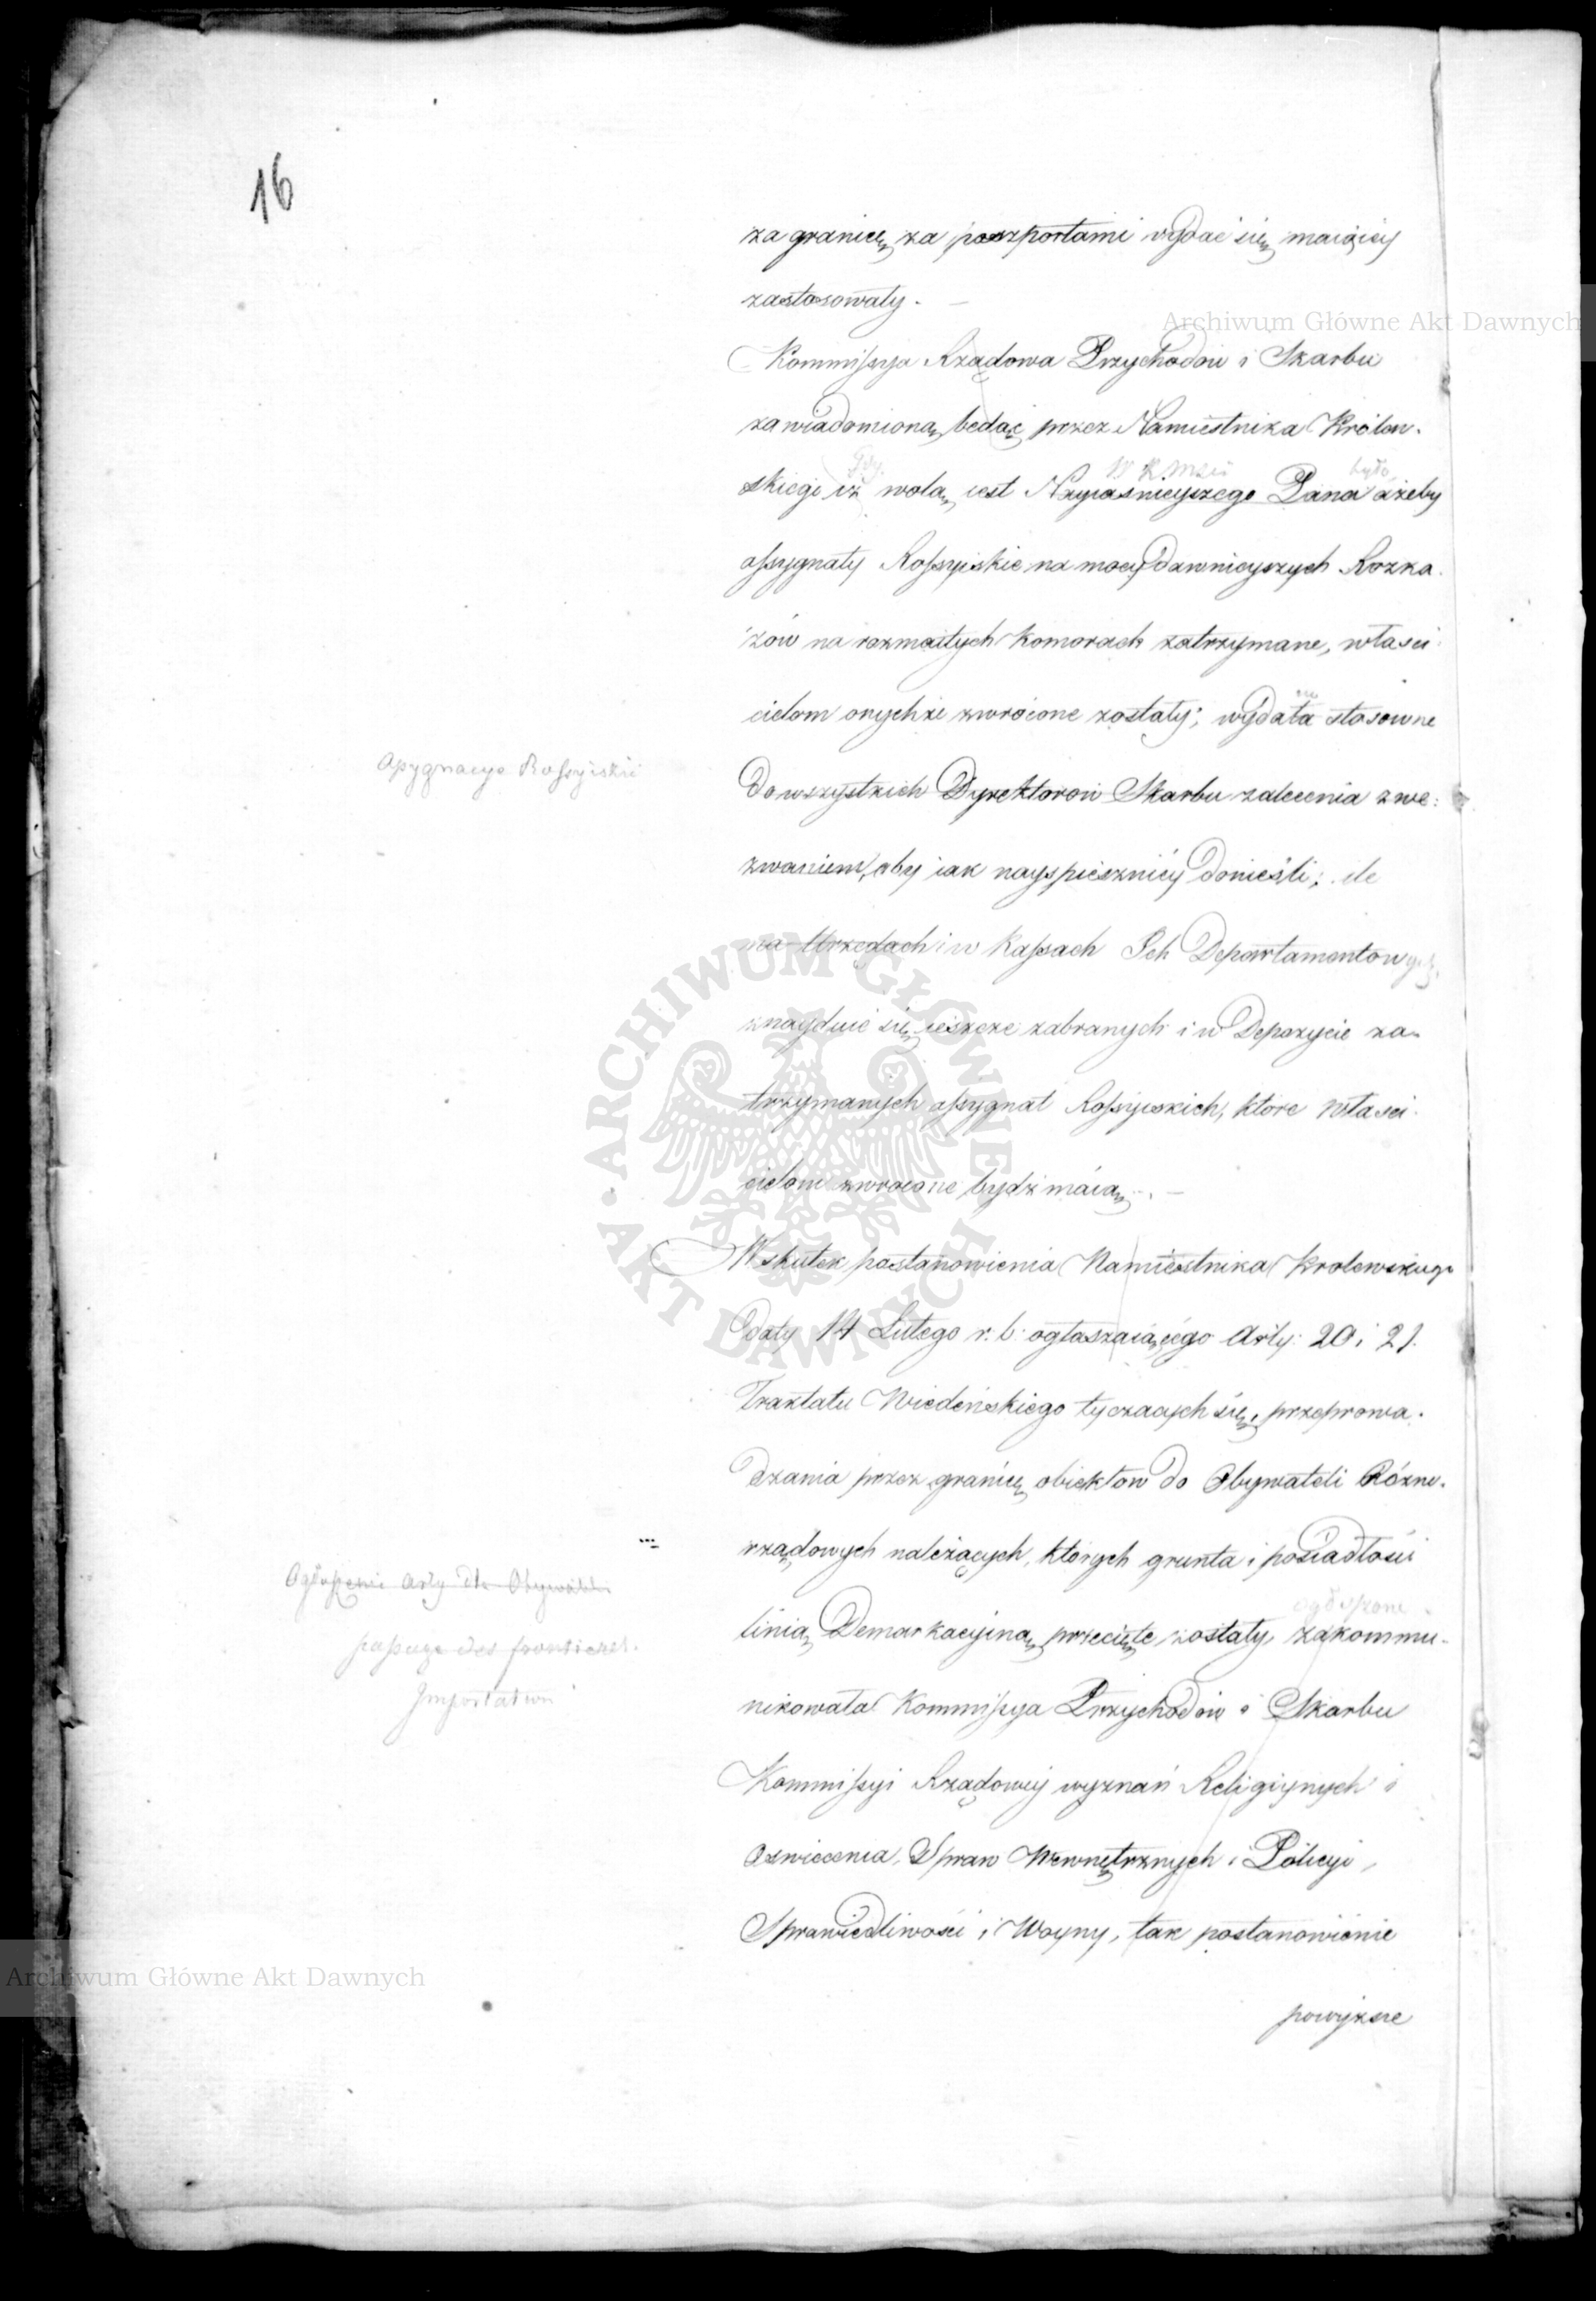 16
za granicę za paszportami wydać się maiącéy
zastosowały. —
Kommissya Rządowa Przychodow i Skarbu
zawiadomioną będąc przez Namiestnika Królew-
skiego iż wolą iest Nayiaśnieyszego Pana ażeby
assygnaty Rossyiskie na mocy dawnieyszych Rozka-
zów na rozmaitych Komorach zatrzymane, właści-
cielom onychże zwrócone zostały; wydała stosowne
Assygnacye Rossyiskie
do wszystkich Dyrektorow Skarbu zalecenia z we-
zwaniem, aby iak nayspieszniéy donieśli; ile
na Urzędach i w Kassach Ich Departamentowych
znayduie się ieszcze zabranych i w Depozycie za-
trzymanych assygnat Rossyiskich, ktore właści-
cielom zwrocone bydź maią. —
W skutek postanowienia Namiestnika Krolewskiego
daty 14 Lutego r. b. ogłaszaiącego Arty: 20 i 21.
Traktatu Wiedeńskiego tyczących się przeprowa-
dzania przez granicę obiektow do Obywateli Różno-
rządowych należących, których grunta i posiadłości
Ogłoszenie Arty dla Obywateli
linią Demarkacyiną przecięte zostały, zakommu-
ogłoszone
passage des frontieres.
Importation
nikowała Kommissya Przychodow i Skarbu
Kommissyi Rządowéy wyznań Religiynych i
Oswiecenia, Spraw Wewnętrznych i Policyi,
Sprawiedliwości i Woyny, tak postanowienie
powyższe
Archiwum Główne Akt Dawnych
ARCHIWUM GŁÓWNE AKT DAWNYCH
Archiwum Główne Akt Dawnych